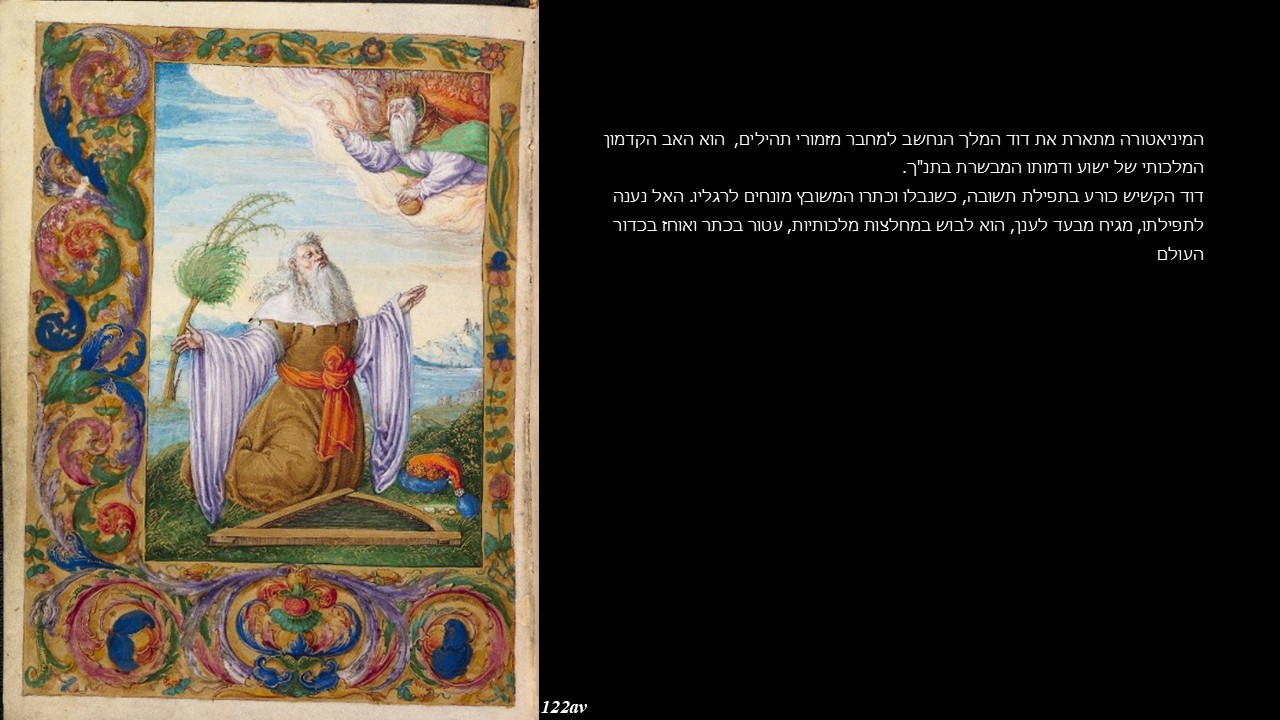 המיניאטורה מתארת את דוד המלך הנחשב למחבר מזמורי תהילים,  הוא האב הקדמון
המלכותי של ישוע ודמותו המבשרת בתנ"ך.
דוד הקשיש כורע בתפילת תשובה, כשנבלו וכתרו המשובץ מונחים לרגליו. האל נענה
לתפילתו, מגיח מבעד לענן, הוא לבוש במחלצות מלכותיות, עטור בכתר ואוחז בכדור
העולם
122av